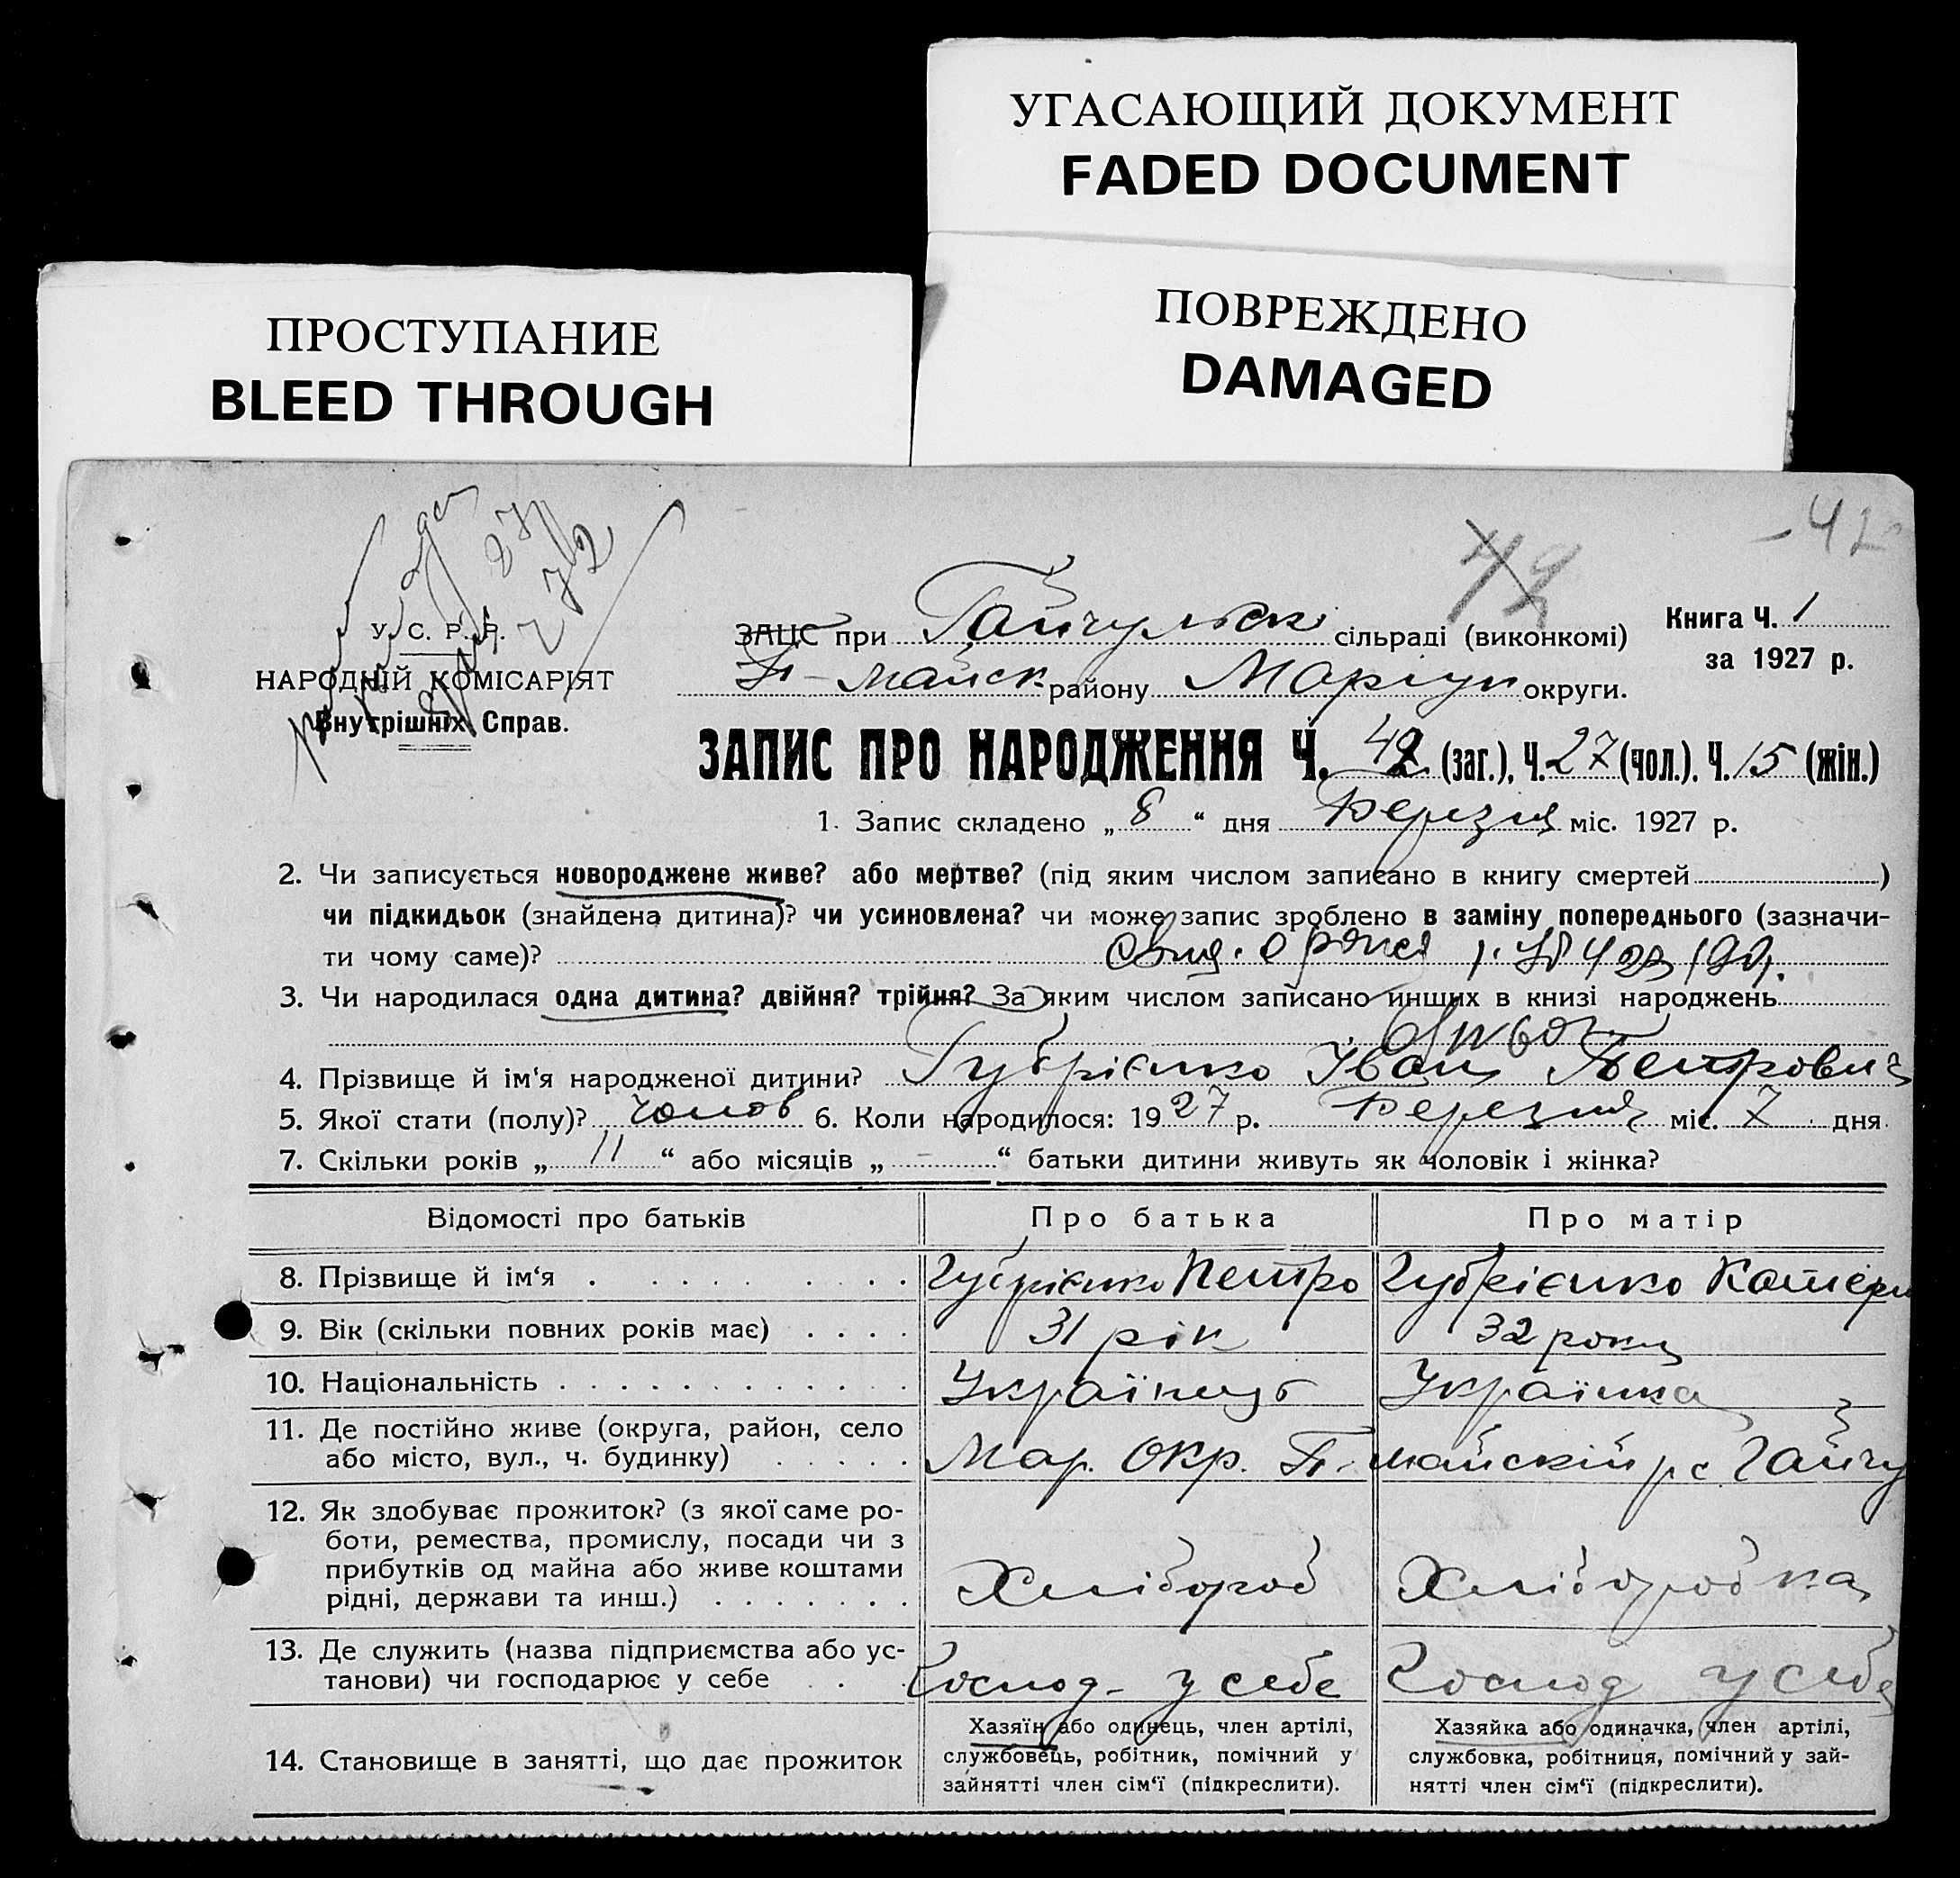 УГАСАЮЩИЙ ДОКУМЕНТ
FADED DOCUMENT
ПОВРЕЖДЕНО
DAMAGED
ПРОСТУПАНИЕ
BLEED THROUGH
42
У. С. Р. Р.
НАРОДНІЙ КОМІСАРІЯТ
Внутрішніх Справ.
ЗАЦС при Гайчульск сільраді (виконкомі)
П-майск району Маріуп округи.
Книга Ч. 1
за 1927 р.
ЗАПИС ПРО НАРОДЖЕННЯ Ч. 42 (заг.), Ч. 27 (чол.). Ч. 15 (жін.)
1. Запис складено „ 8 “ дня Березня міс. 1927 р.
2. Чи записується новороджене живе? або мертве? (під яким числом записано в книгу смертей )
чи підкидьок (знайдена дитина)? чи усиновлена? чи може запис зроблено в заміну попереднього (зазначи-
ти чому саме)?
3. Чи народилася одна дитина? двійня? трійня? За яким числом записано инших в книзі народжень
4. Прізвище й ім'я народженої дитини? Губрієнко Іван Петрович
5. Якої стати (полу)? чолов 6. Коли народилося: 1927 р. Березня міс. 7 дня
7. Скільки років „ 11 “ або місяців „ - “ батьки дитини живуть як чоловік і жінка?
Відомості про батьків Про батька Про матір
8. Прізвище й ім'я Губрієнко Петро Губрієнко Катери
9. Вік (скільки повних років має) 31 рік 32 роки
10. Національність Українець Українка
11. Де постійно живе (округа, район, село
або місто, вул., ч. будинку) Мар. Окр. П-майскій р с Гайчу
12. Як здобуває прожиток? (з якої саме ро-
боти, ремества, промислу, посади чи з
прибутків од майна або живе коштами
рідні, держави та инш.) Хлібороб Хліборобка
13. Де служить (назва підприємства або ус-
танови) чи господарює у себе Господ- у себе Господ у себе
14. Становище в занятті, що дає прожиток
Хазяїн або одинець, член артілі,
службовець, робітник, помічний у
зайнятті член сім'ї (підкреслити).
Хазяйка або одиначка, член артілі,
службовка, робітниця, помічний у зай-
нятті член сім'ї (підкреслити).